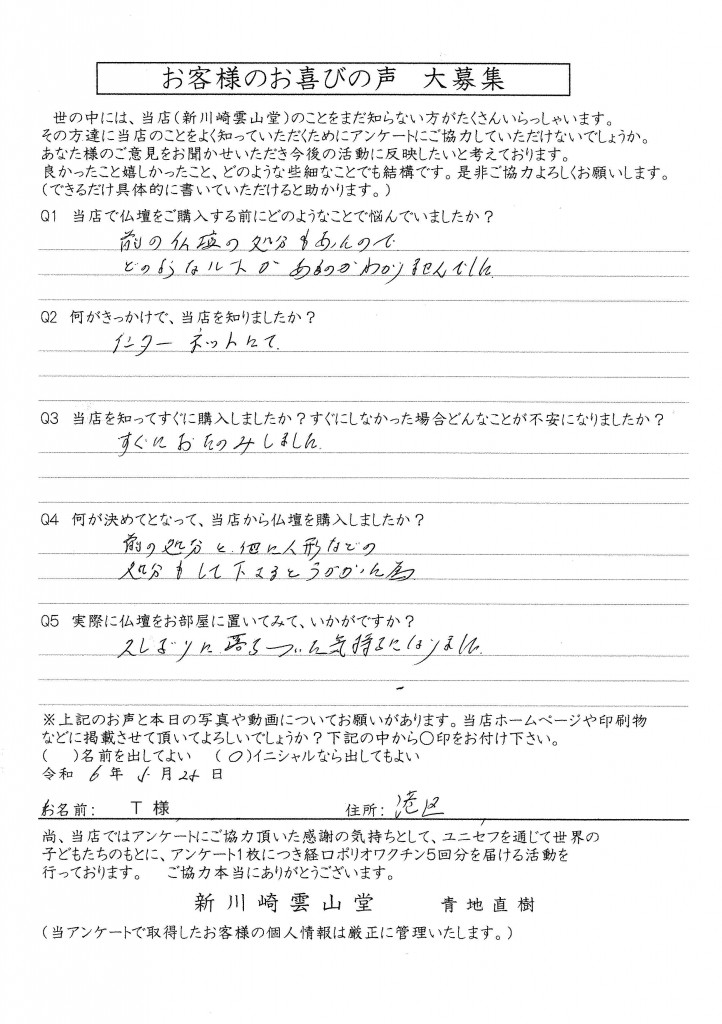 お客様のお喜びの声　大募集
世の中には、当店(新川崎雲山堂)のことをまだ知らない方がたくさんいらっしゃいます。
その方達に当店のことをよく知っていただくためにアンケートにご協力していただけないでしょうか。
あなた様のご意見をお聞かせいただき今後の活動に反映したいと考えております。
良かったこと嬉しかったこと、どのような些細なことでも結構です。是非ご協力よろしくお願いします。
(できるだけ具体的に書いていただけると助かります。)
Q1　当店で仏壇をご購入する前にどのようなことで悩んでいましたか？
前の仏壇の処分もあんので
どのようなルートがあるのかわかりませんでした
Q2　何がきっかけで、当店を知りましたか？
インターネットにて
Q3　当店を知ってすぐに購入しましたか？すぐにしなかった場合どんなことが不安になりましたか？
すぐにおたのみしました
Q4　何が決めてとなって、当店から仏壇を購入しましたか？
前の処分と、他に人形などの
処分もして下さるとうかがった為
Q5　実際に仏壇をお部屋に置いてみて、いかがですか？
久しぶりに落ちついた気持ちになりました
※上記のお声と本日の写真や動画についてお願いがあります。当店ホームページや印刷物
などに掲載させて頂いてよろしいでしょうか？下記の中から○印をお付け下さい。
(　)名前を出してよい　(○)イニシャルなら出してもよい
令和 6 年 5 月 日
お名前：　T 様　住所：港区
尚、当店ではアンケートにご協力頂いた感謝の気持ちとして、ユニセフを通じて世界の
子どもたちのもとに、アンケート1枚につき経口ポリオワクチン5回分を届ける活動を
行っております。　ご協力本当にありがとうございます。
新川崎雲山堂　青地直樹
(当アンケートで取得したお客様の個人情報は厳正に管理いたします。)